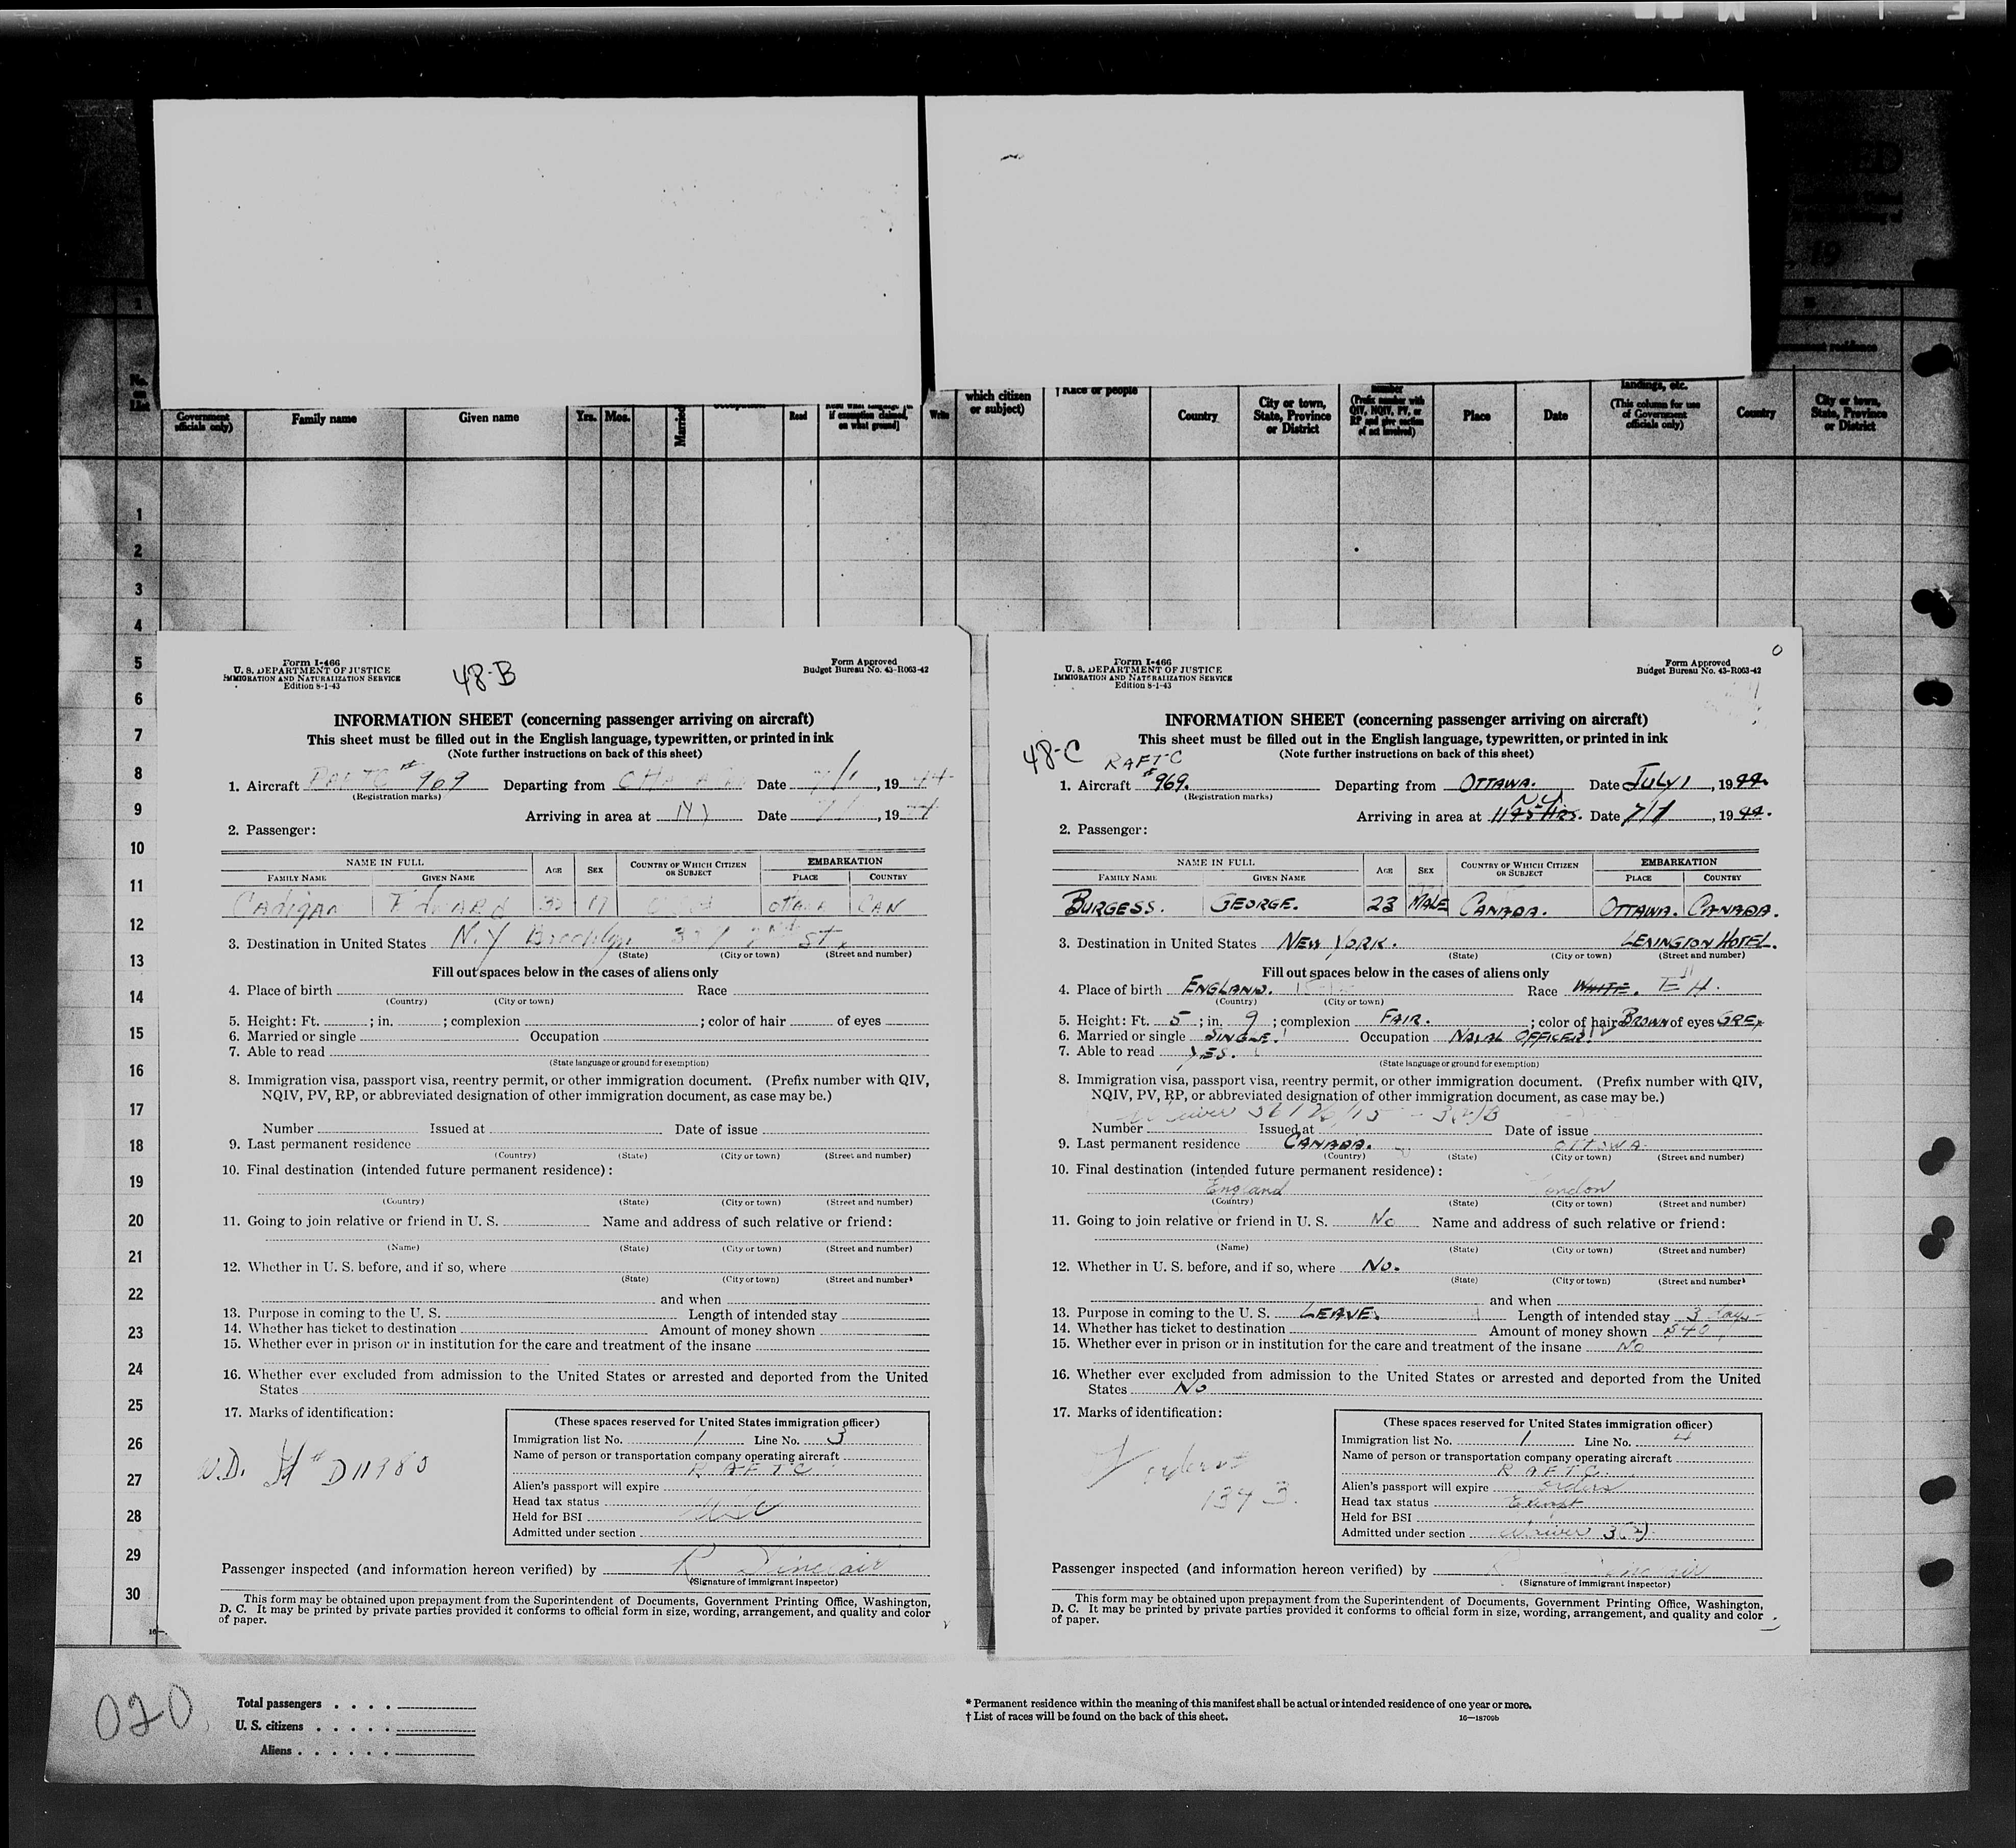 No. on List
Government officials only)
Family name
Given name
Yrs.
Mos.
Married
Read
if exemption claimed, on what ground]
Write
which citizen or subject)
† Race or people
Country
City or town, State, Province or District
number (Prefix number with QIV, NQIV, PV, or RP and give section of act involved)
Place
Date
landings, etc. (This column for use of Government officials only)
Country
City or town, State, Province or District
1
2
3
4
5
6
7
8
9
10
11
12
13
14
15
16
17
18
19
20
21
22
23
24
25
26
27
28
29
30
Form I-466
U. S. DEPARTMENT OF JUSTICE
IMMIGRATION AND NATURALIZATION SERVICE
Edition 8-1-43
48-B
Form Approved
Budget Bureau No. 43-R063-42
INFORMATION SHEET (concerning passenger arriving on aircraft)
This sheet must be filled out in the English language, typewritten, or printed in ink
(Note further instructions on back of this sheet)
1. Aircraft RAFTC # 969 Departing from Ottawa Date 7/1, 1944
(Registration marks)
Arriving in area at NY Date 7/1, 1944
2. Passenger:
NAME IN FULL
FAMILY NAME GIVEN NAME AGE SEX COUNTRY OF WHICH CITIZEN OR SUBJECT EMBARKATION PLACE COUNTRY
Cadigan Edward M Ottawa CAN
3. Destination in United States N.Y Brooklyn St.
(State) (City or town) (Street and number)
Fill out spaces below in the cases of aliens only
4. Place of birth Race
(Country) (City or town)
5. Height: Ft. ; in. ; complexion ; color of hair of eyes
6. Married or single Occupation
7. Able to read
(State language or ground for exemption)
8. Immigration visa, passport visa, reentry permit, or other immigration document. (Prefix number with QIV,
NQIV, PV, RP, or abbreviated designation of other immigration document, as case may be.)
Number Issued at Date of issue
9. Last permanent residence
(Country) (State) (City or town) (Street and number)
10. Final destination (intended future permanent residence):
(Country) (State) (City or town) (Street and number)
11. Going to join relative or friend in U. S. Name and address of such relative or friend:
(Name) (State) (City or town) (Street and number)
12. Whether in U. S. before, and if so, where
(State) (City or town) (Street and number)
and when
13. Purpose in coming to the U. S. Length of intended stay
14. Whether has ticket to destination Amount of money shown
15. Whether ever in prison or in institution for the care and treatment of the insane
16. Whether ever excluded from admission to the United States or arrested and deported from the United
States
17. Marks of identification:
W.D. # D11980
(These spaces reserved for United States immigration officer)
Immigration list No. 1 Line No. 3
Name of person or transportation company operating aircraft
RAFTC
Alien's passport will expire
Head tax status
Held for BSI
Admitted under section
Passenger inspected (and information hereon verified) by R Sinclair
(Signature of immigrant inspector)
This form may be obtained upon prepayment from the Superintendent of Documents, Government Printing Office, Washington,
D. C. It may be printed by private parties provided it conforms to official form in size, wording, arrangement, and quality and color
of paper.
Form I-466
U. S. DEPARTMENT OF JUSTICE
IMMIGRATION AND NATURALIZATION SERVICE
Edition 8-1-43
Form Approved
Budget Bureau No. 43-R063-42
INFORMATION SHEET (concerning passenger arriving on aircraft)
This sheet must be filled out in the English language, typewritten, or printed in ink
(Note further instructions on back of this sheet)
48-C
RAFTC
1. Aircraft # 969. Departing from OTTAWA. Date JULY 1, 1944.
(Registration marks)
Arriving in area at NY 1145 HRS. Date 7/1, 1944.
2. Passenger:
NAME IN FULL
FAMILY NAME GIVEN NAME AGE SEX COUNTRY OF WHICH CITIZEN OR SUBJECT EMBARKATION PLACE COUNTRY
BURGESS. GEORGE. 23 MALE CANADA. OTTAWA. CANADA.
3. Destination in United States NEW YORK. LEXINGTON HOTEL.
(State) (City or town) (Street and number)
Fill out spaces below in the cases of aliens only
4. Place of birth ENGLAND. Race WHITE.
(Country) (City or town)
5. Height: Ft. 5; in. 9; complexion FAIR.; color of hair BROWN of eyes GREY
6. Married or single SINGLE. Occupation NAVAL OFFICER.
7. Able to read YES.
(State language or ground for exemption)
8. Immigration visa, passport visa, reentry permit, or other immigration document. (Prefix number with QIV,
NQIV, PV, RP, or abbreviated designation of other immigration document, as case may be.)
Number Issued at Date of issue
9. Last permanent residence CANADA. OTTAWA.
(Country) (State) (City or town) (Street and number)
10. Final destination (intended future permanent residence):
England London
(Country) (State) (City or town) (Street and number)
11. Going to join relative or friend in U. S. No Name and address of such relative or friend:
(Name) (State) (City or town) (Street and number)
12. Whether in U. S. before, and if so, where No.
(State) (City or town) (Street and number)
and when
13. Purpose in coming to the U. S. LEAVE. Length of intended stay 3 days
14. Whether has ticket to destination Amount of money shown $40
15. Whether ever in prison or in institution for the care and treatment of the insane No
16. Whether ever excluded from admission to the United States or arrested and deported from the United
States No
17. Marks of identification:
orders
1343.
(These spaces reserved for United States immigration officer)
Immigration list No. 1 Line No. 4
Name of person or transportation company operating aircraft
RAFTC.
Alien's passport will expire orders
Head tax status Exempt
Held for BSI
Admitted under section Waiver 3(2)
Passenger inspected (and information hereon verified) by R Sinclair
(Signature of immigrant inspector)
This form may be obtained upon prepayment from the Superintendent of Documents, Government Printing Office, Washington,
D. C. It may be printed by private parties provided it conforms to official form in size, wording, arrangement, and quality and color
of paper.
020
Total passengers . . . .
U. S. citizens . . . . .
Aliens . . . . . .
* Permanent residence within the meaning of this manifest shall be actual or intended residence of one year or more.
† List of races will be found on the back of this sheet.
16—18709b